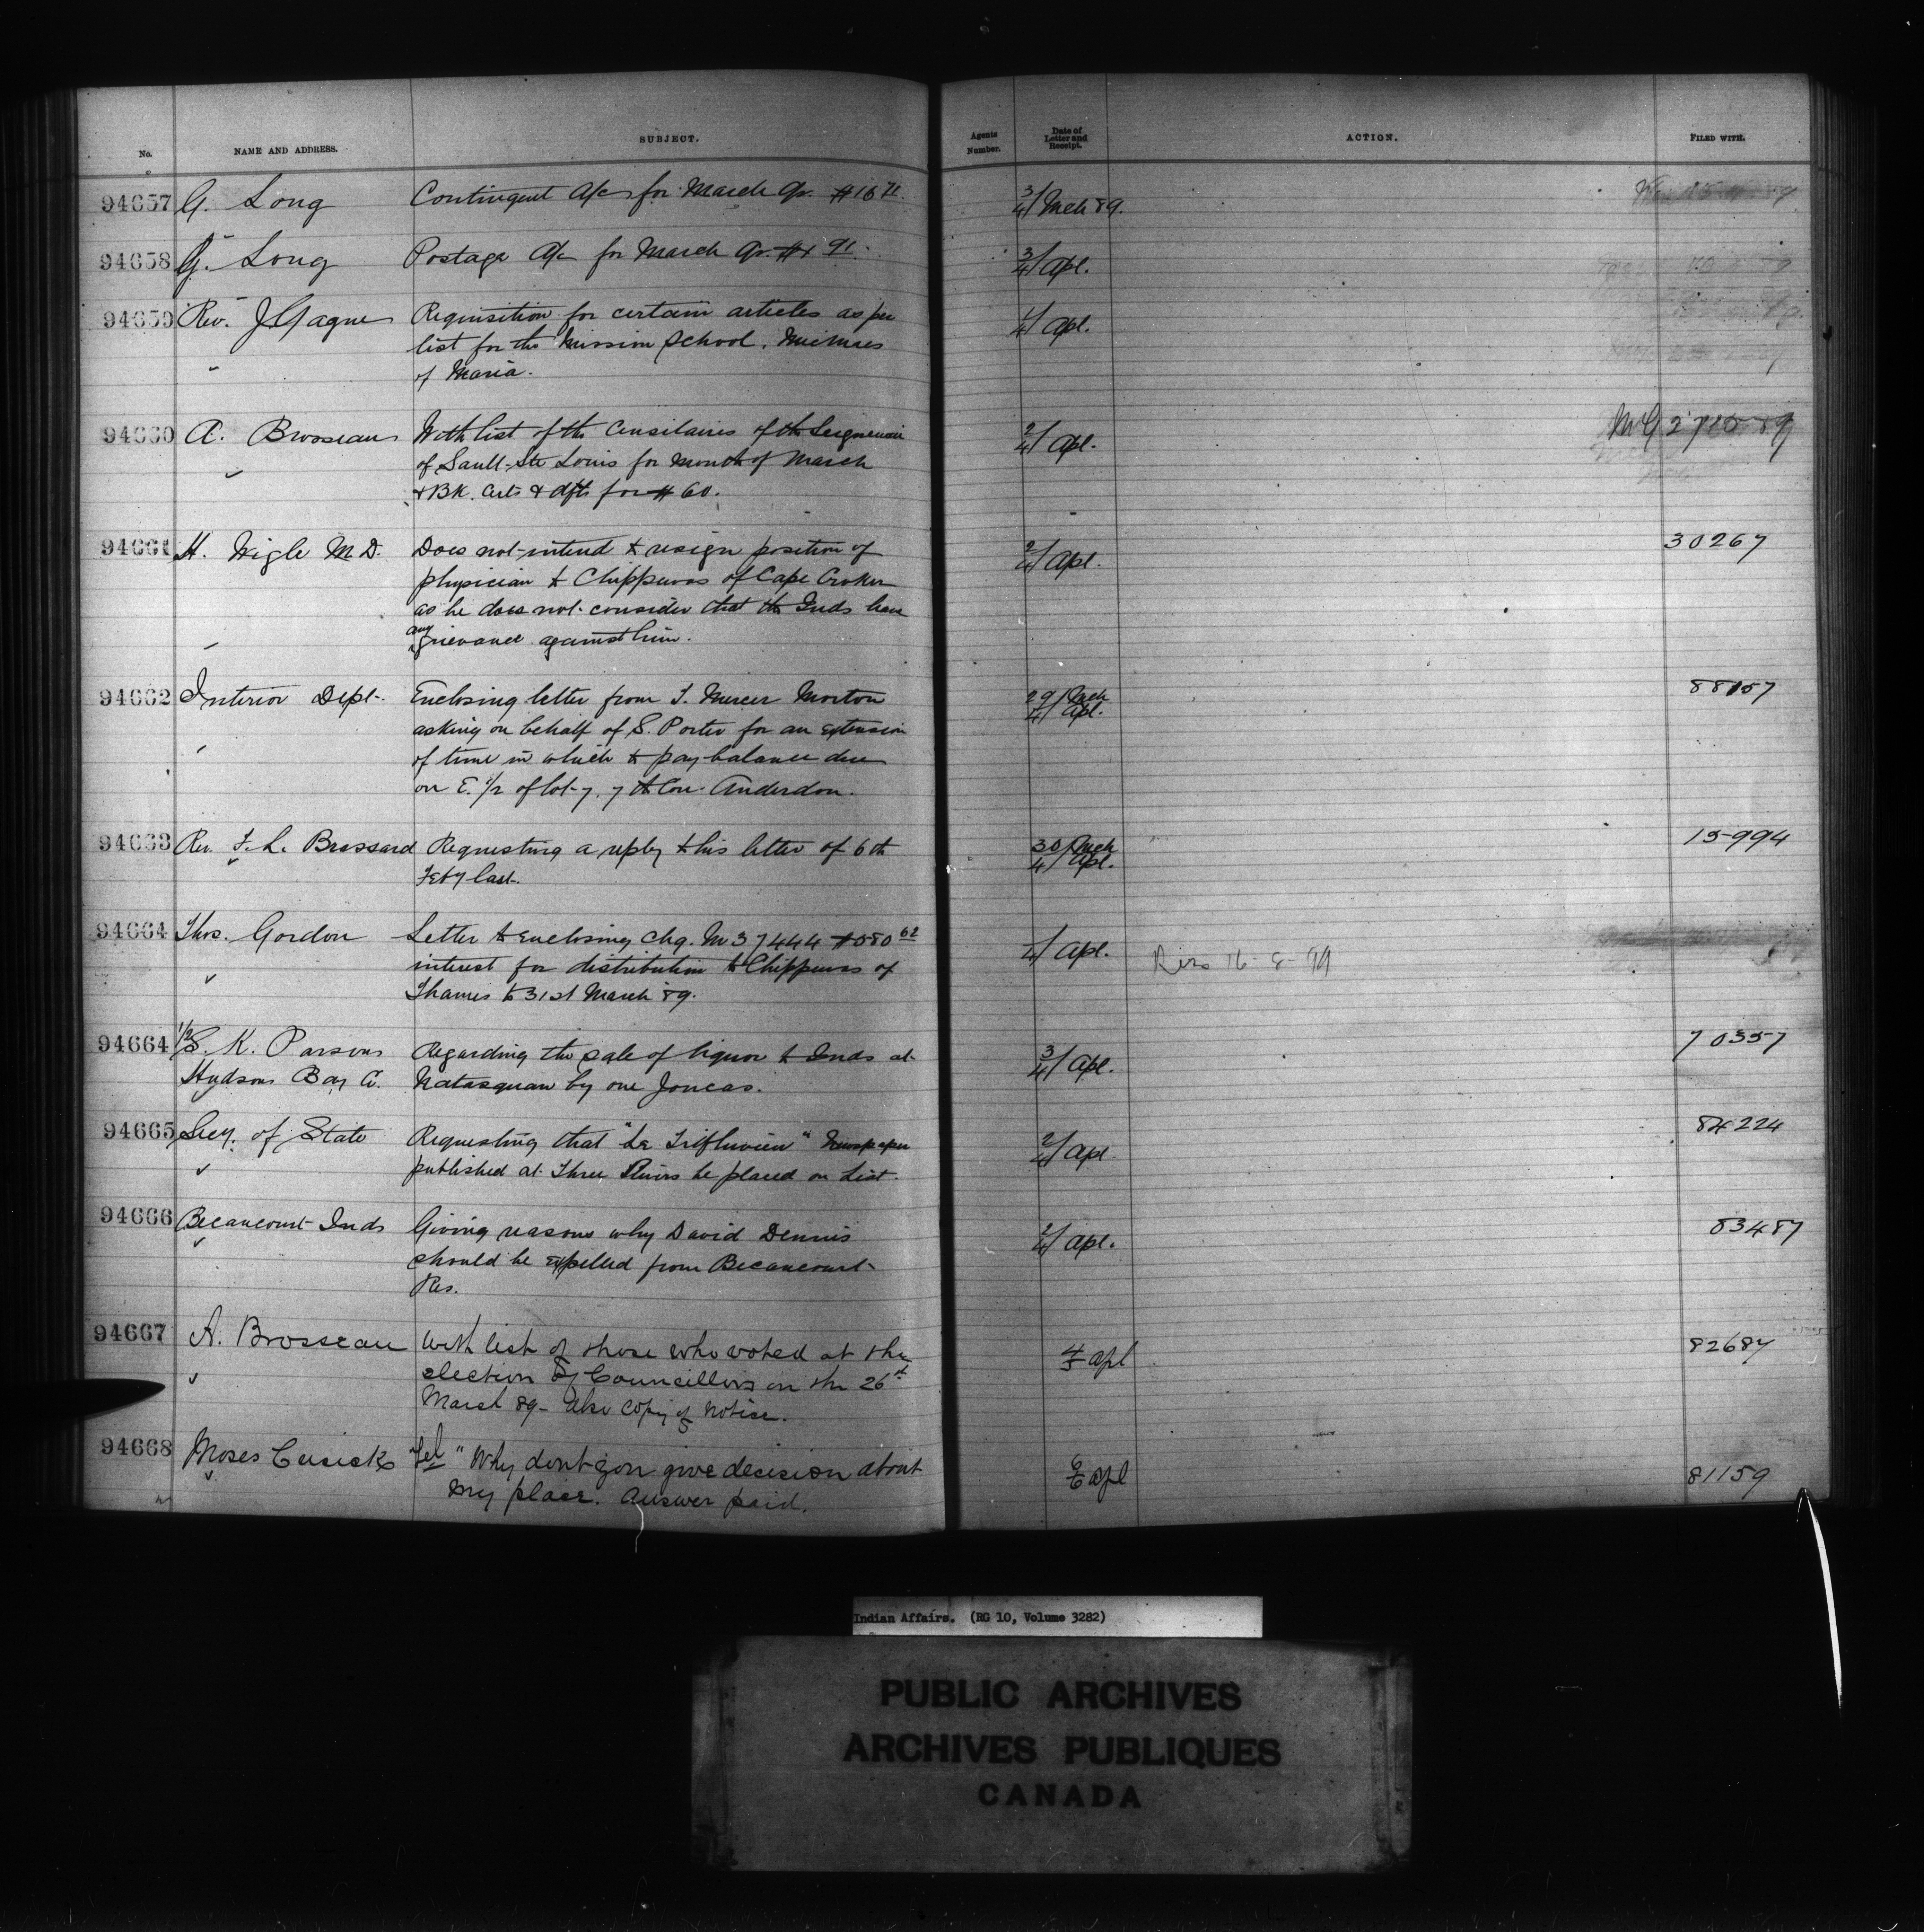 No. NAME AND ADDRESS. SUBJECT. Agents Number. Date of Letter and Receipt. ACTION. FILED WITH.
94657 G. Long Contingent A/c for March Qr. $16 71. 3/4/ Mch 89.
94658 G. Long Postage A/c for March Qr. 91. 3/4/ Apl.
94659 Rev. J Gagne Requisition for certain articles as per 1/4/ Apl.
list for the Mission School. Micmacs
of Maria.
94660 A. Brosseau With list of the Censitaires of the Seigneurie 2/4/ Apl.
of Sault-Ste Louis for month of March
& BK. Certs & dfts for $60.
94661 H. Wigle M.D. Does not intend to resign position of 2/4/ Apl. 30267
physician to Chippewas of Cape Croker
as he does not consider that the Inds have
any grievance against him.
94662 Interior Dept. Enclosing letter from T. Mercer Morton 29/ Mch 4/ Apl. 88157
asking on behalf of S. Porter for an extension
of time in which to pay balance due
on E. 1/2 of lot 7. 7th Con. Anderdon.
94663 Rev. F. L. Brassard Requesting a reply to his letter of 6th 30/ Mch 4/ Apl. 15994
Feby last.
94664 Thos. Gordon Letter to enclosing chq. No 37444 $580 62 4/ Apl. 16-8-
interest for distribution to Chippewas of
Thames to 31st March 89.
94664 1/2 S. K. Parsons Regarding the sale of liquor to Inds at 3/4/ Apl. 70357
Hudsons Bay Co. Natasquan by one Joncas.
94665 Secy. of State Requesting that "Le Trifluvien" Newspaper 2/4/ Apl. 84224
published at Three Rivers be placed on List.
94666 Becancourt Inds Giving reasons why David Dennis 2/4/ Apl. 83487
should be expelled from Becancourt
Res.
94667 A. Brosseau With list of those who voted at the 4/5 apl 82687
election of Councillors on the 26th
March 89- Also Copy of Notice.
94668 Moses Cusick Tel "Why dont you give decision about 6 apl 81159
my place. Answer paid.
Indian Affairs. (RG 10, Volume 3282)
PUBLIC ARCHIVES
ARCHIVES PUBLIQUES
CANADA